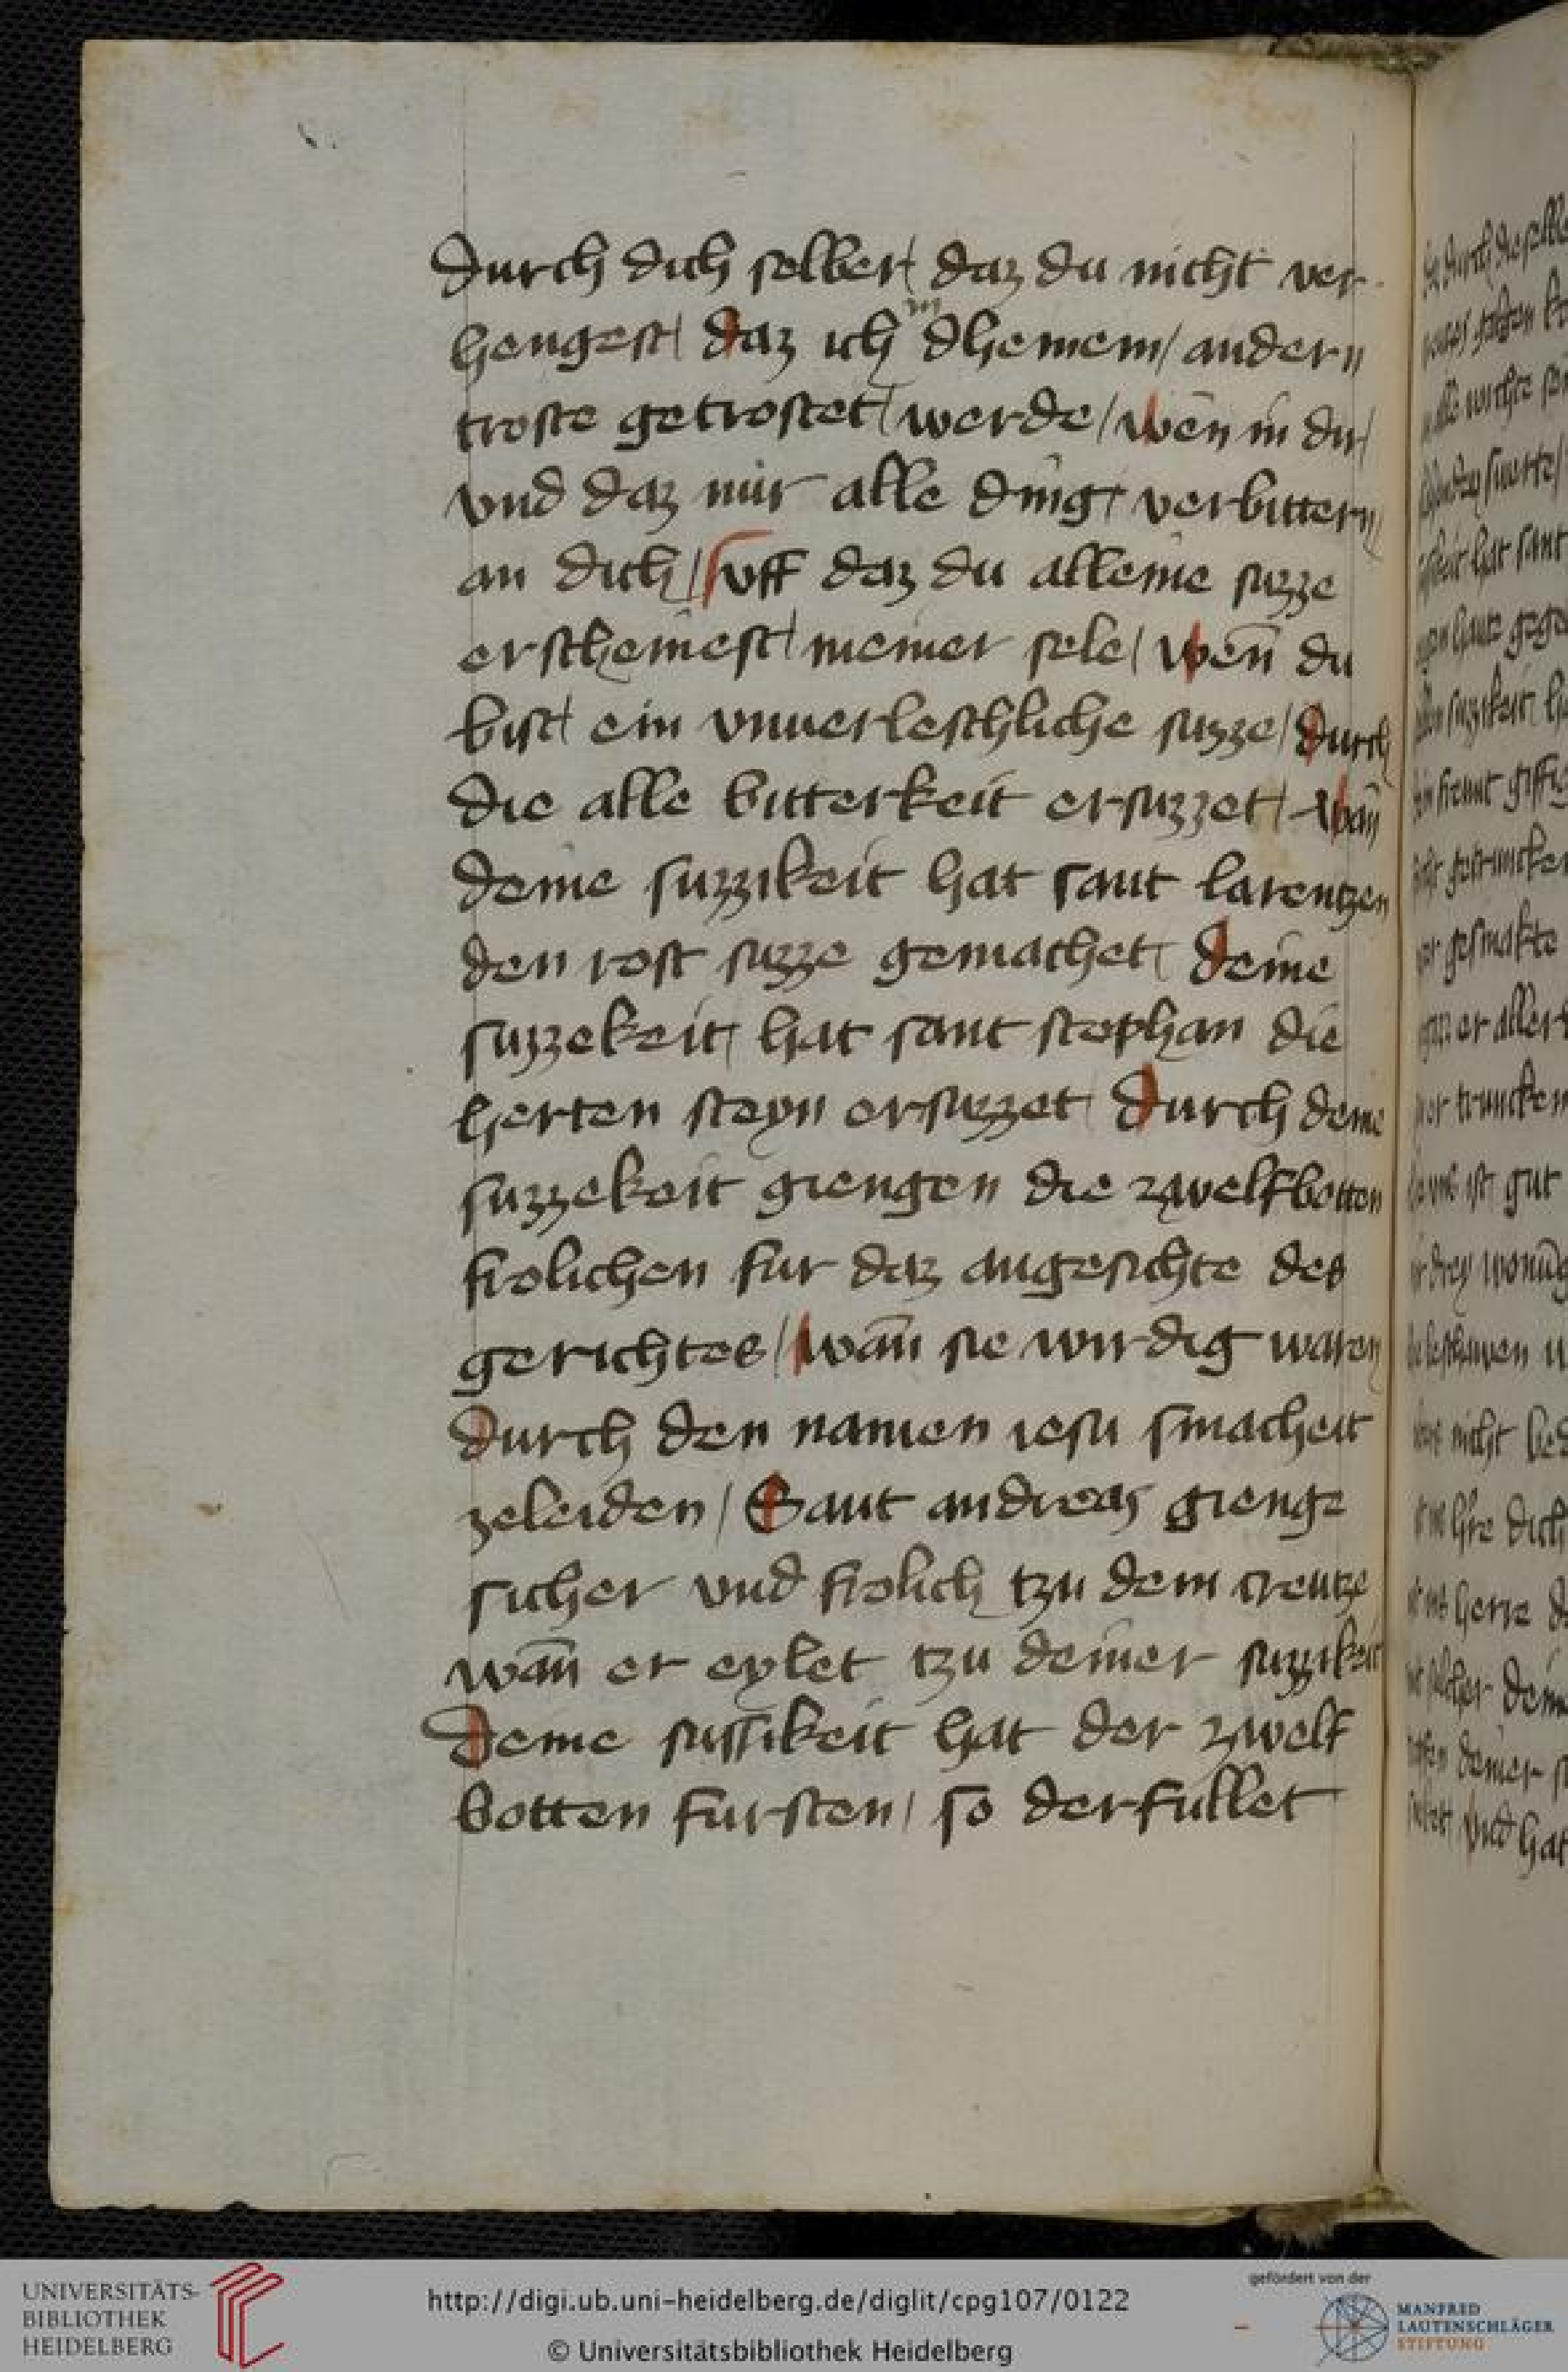 durch dich selber/ daz du nicht ver-
hengest/ daz ich in dheinem/ andern
troste getrostet/ werde/ wēn in dir/
vnd daz mir alle ding/ verbittern/
an dich/ vff daz du alleine suzze
erscheinest/ meiner sele/ wēn du
bist/ ein vnuerleschliche suzze/ durch
die alle bitterkeit ersuzzet/ wān
deine suzzikeit hat sant larentzen
den rost suzze gemachet/ deine
suzzekeit/ hat sant stephan die
herten steyn ersuzzet/ durch deine
suzzekeit giengen die zwelfbotten
frolichen fur daz angesichte des
gerichtes/ wān sie wirdig waren
durch den namen iesu smacheit
zeleiden/ Sant andreas gienge
sicher vnd frolich tzu dem creutze
wān er eylet tzu deiner suzzikeit
deine sussikeit hat der zwelf
botten fursten/ so derfullet
UNIVERSITÄTS-
BIBLIOTHEK
HEIDELBERG
http://digi.ub.uni-heidelberg.de/diglit/cpg107/0122
© Universitätsbibliothek Heidelberg
gefördert von der
MANFRED
LAUTENSCHLÄGER
STIFTUNG